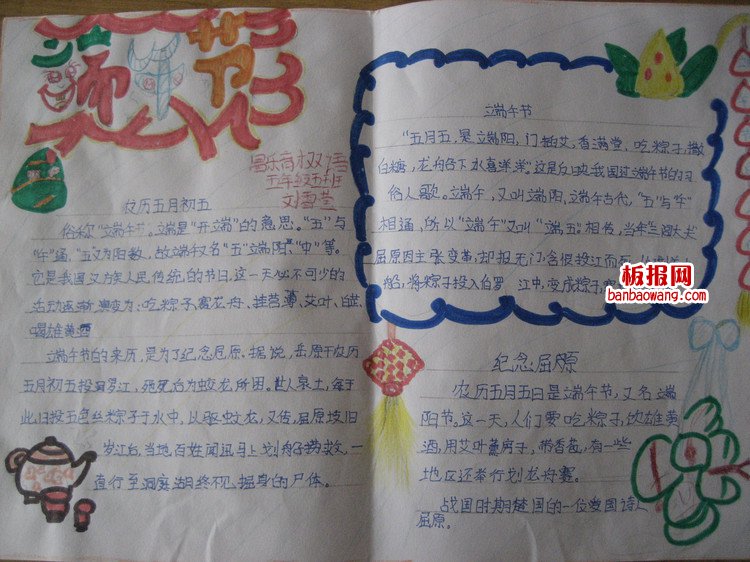 端午节
昌乐育权伍
五年级五班
农历五月初五
俗称"端午节。端是"开端"的意思。"五"与
"午"通,"五"又为阳数,故端午又名"五"端阳""中"等。
它是我国汉族人民传统的节日,这一天必不可少的
活动逐渐演变为、吃粽子赛龙舟、挂菖蒲、艾叶、白芷、
喝雄黄酒
端午节的来历,是为了纪念屈原。据说,屈原于农历
五月初五投汨罗江,死后为蛟龙所困。世人哀之,每于
此日投五色丝粽子于水中,以驱蛟龙,又传,屈原投汨
罗江后,当地百姓闻讯马上划船捞救,一
直行至洞庭湖终不见屈原的尸体。
端午节
"五月五,是端阳,门插艾,香满堂、吃粽子,撒
白糖,龙舟下水喜洋洋。"这是
俗人歌。端午,又叫端阳,端午古代,"五"与"午"
相通,所以"端午"又叫"端五"。相传,当年三闾大夫
屈原因主张变革,却报无门,含恨投江而
船,将粽子投入汨罗 江中,变成粽子,
板报网
banbaowang.com
纪念屈原
农历五月五日是端午节,又名端
阳节。这一天,人们要吃粽子,饮雄黄
酒,用艾叶熏房子,带香苞,有一些
地区还举行划龙舟赛。
战国时期楚国的一位爱国诗人
屈原。